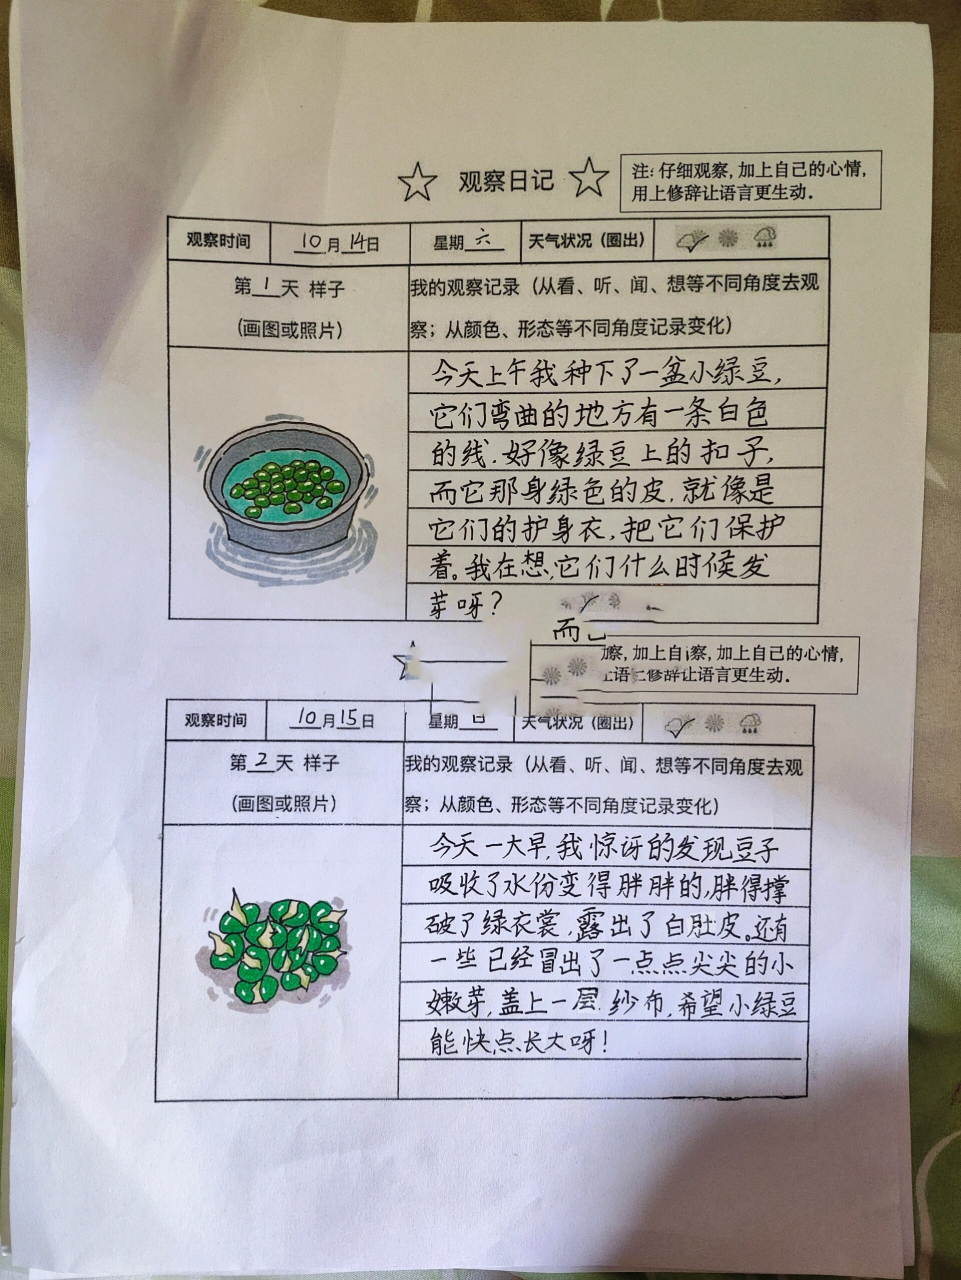 ☆ 观察日记 ☆
注：仔细观察，加上自己的心情，
用上修辞让语言更生动．
观察时间 10月14日 星期六 天气状况（圈出）
第1天 样子
（画图或照片）
我的观察记录（从看、听、闻、想等不同角度去观
察；从颜色、形态等不同角度记录变化）
今天上午我种下了一盆小绿豆，
它们弯曲的地方有一条白色
的线．好像绿豆上的扣子，
而它那身绿色的皮．就像是
它们的护身衣，把它们保护
着。我在想，它们什么时候发
芽呀？
而
察，加上自
察，加上自己的心情，
上语
修辞让语言更生动．
观察时间 10月15日 星期日 天气状况（圈出）
第2天 样子
（画图或照片）
我的观察记录（从看、听、闻、想等不同角度去观
察；从颜色、形态等不同角度记录变化）
今天一大早，我惊讶的发现豆子
吸收了水份变得胖胖的，胖得撑
破了绿衣裳，露出了白肚皮，还有
一些已经冒出了一点点尖尖的小
嫩芽，盖上一层纱布，希望小绿豆
能快点长大呀！